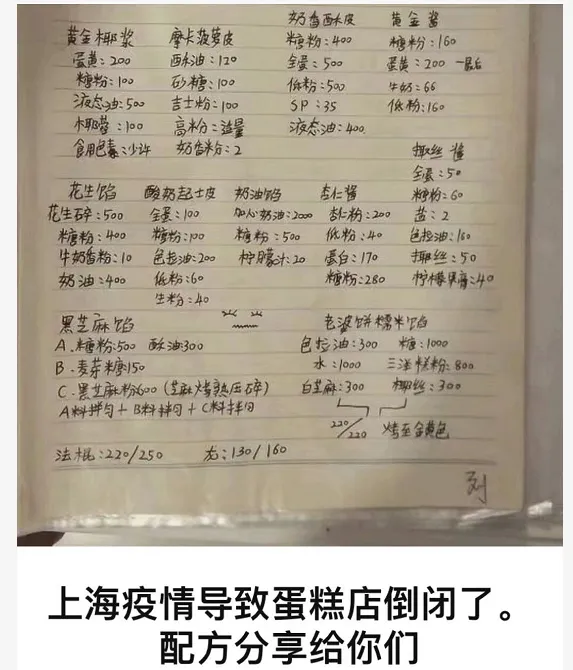 黄金椰浆
蛋黄:200
糖粉:100
液态油:500
椰蓉:100
食用色素:少许
摩卡菠萝皮
酥油:120
砂糖:100
吉士粉:100
高粉:适量
奶香粉:2
奶香酥皮
糖粉:400
全蛋:500
低粉:500
SP:35
液态油:400.
黄金酱
糖粉:160
蛋黄:200 一最后
牛奶:66
低粉:160
椰丝酱
全蛋:50
糖粉:60
盐:2
色拉油:160
椰丝:50
柠檬果膏:40
花生馅
花生碎:500
糖粉:400
牛奶香粉:10
奶油:400
酸奶起士皮
全蛋:100
糖粉:100
色拉油:200
低粉:60
生粉:40
奶油馅
夹心奶油:2000
糖粉:500
柠檬汁:20
杏仁酱
杏仁粉:200
低粉:40
蛋白:170
糖粉:280
黑芝麻馅
A.糖粉:500 酥油:300
B.麦芽糖:150
C.黑芝麻粉600(芝麻烤熟压碎)
A料拌匀+B料拌匀+C料拌匀
老婆饼糯米馅
色拉油:300 糖:1000
水:1000 三洋糕粉:800
白芝麻:300 椰丝:300
220/220 烤至金黄色
法棍:220/250 龙:130/160
刘
上海疫情导致蛋糕店倒闭了。
配方分享给你们